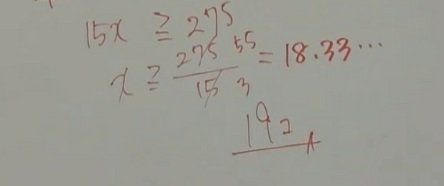 15x ≧ 275
x ≧ 275/15 55/3 = 18.33⋯
19コ